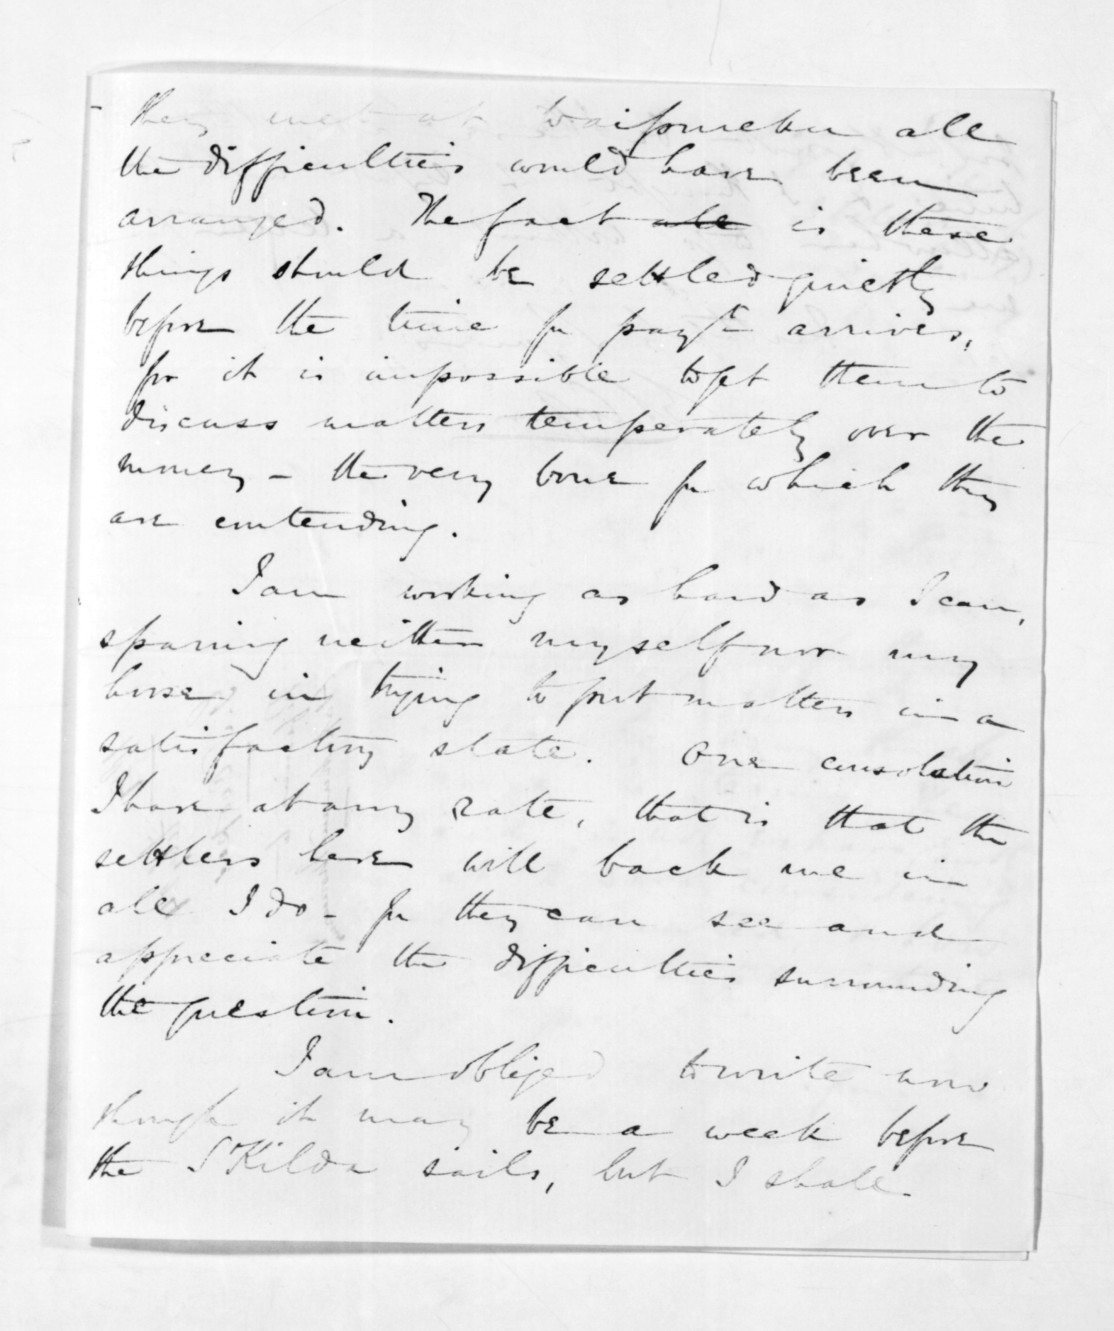 they met at Waiformeku all
the difficulties would have been
arranged. The fact all is these
things should be settled quietly
before the time for payt arrives,
for it is impossible to get them to
discuss matters temperately over the
money - the very bone for which they
are contending.
I am working as hard as I can,
sparing neither myself nor my
horse in trying to put matters in a
satisfactory state. One consolation
I have at any rate, that is that the
settlers here will back me in
all I do - for they can see and
appreciate the difficulties surrounding
the question.
I am obliged to write now
though it may be a week before
the St Kilda sails, but I shall